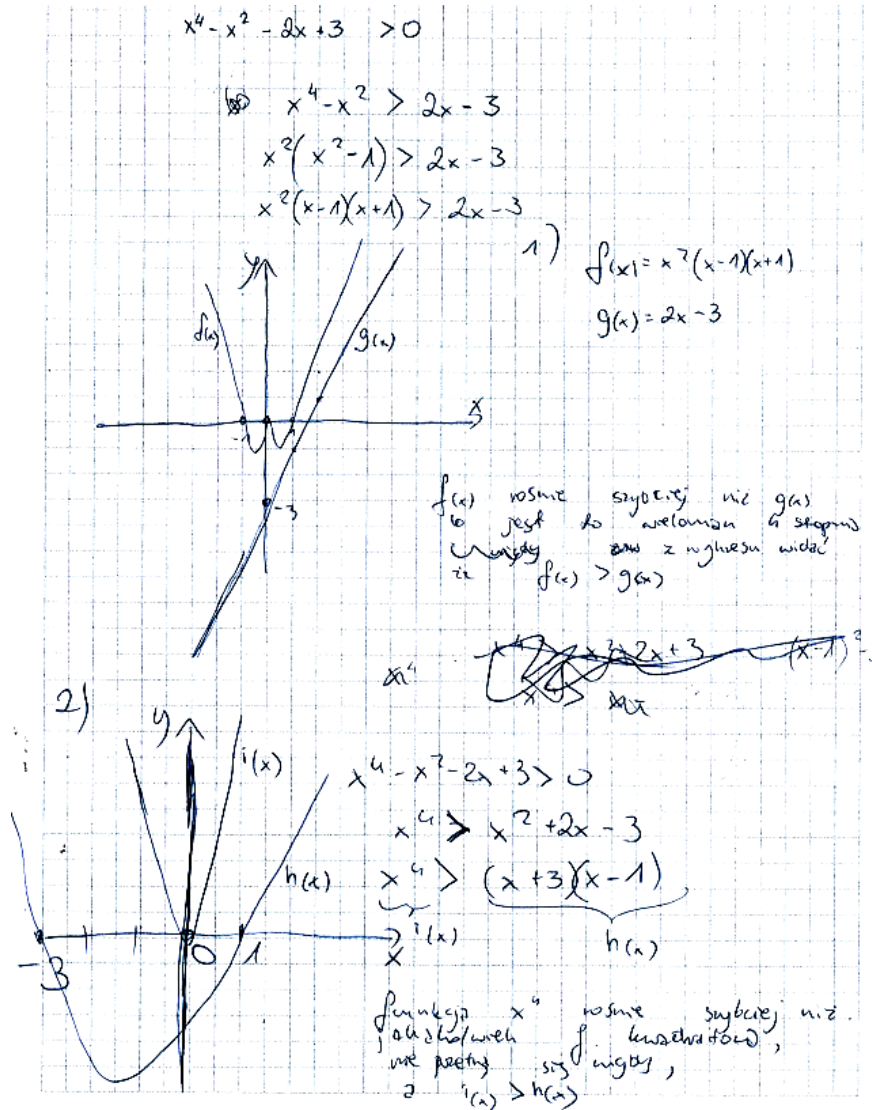 x⁴ - x² - 2x + 3 > 0
x⁴ - x² > 2x - 3
x²(x² - 1) > 2x - 3
x²(x-1)(x+1) > 2x - 3
1) f(x) = x²(x-1)(x+1)
g(x) = 2x - 3
y
f(x)
g(x)
x
-1
1
-3
f(x) rośnie szybciej niż g(x)
bo jest to wielomian 4 stopnia
z wykresu widać
iż f(x) > g(x)
x⁴ x² 2x + 3 (x-1)²
2)
y
i(x)
h(x)
x
-3 0 1
x⁴ - x² - 2x + 3 > 0
x⁴ > x² + 2x - 3
x⁴ > (x+3)(x-1)
i(x) h(x)
funkcja x⁴ rośnie szybciej niż
jakakolwiek f. kwadratowa,
nie przetną się nigdy,
a i(x) > h(x)